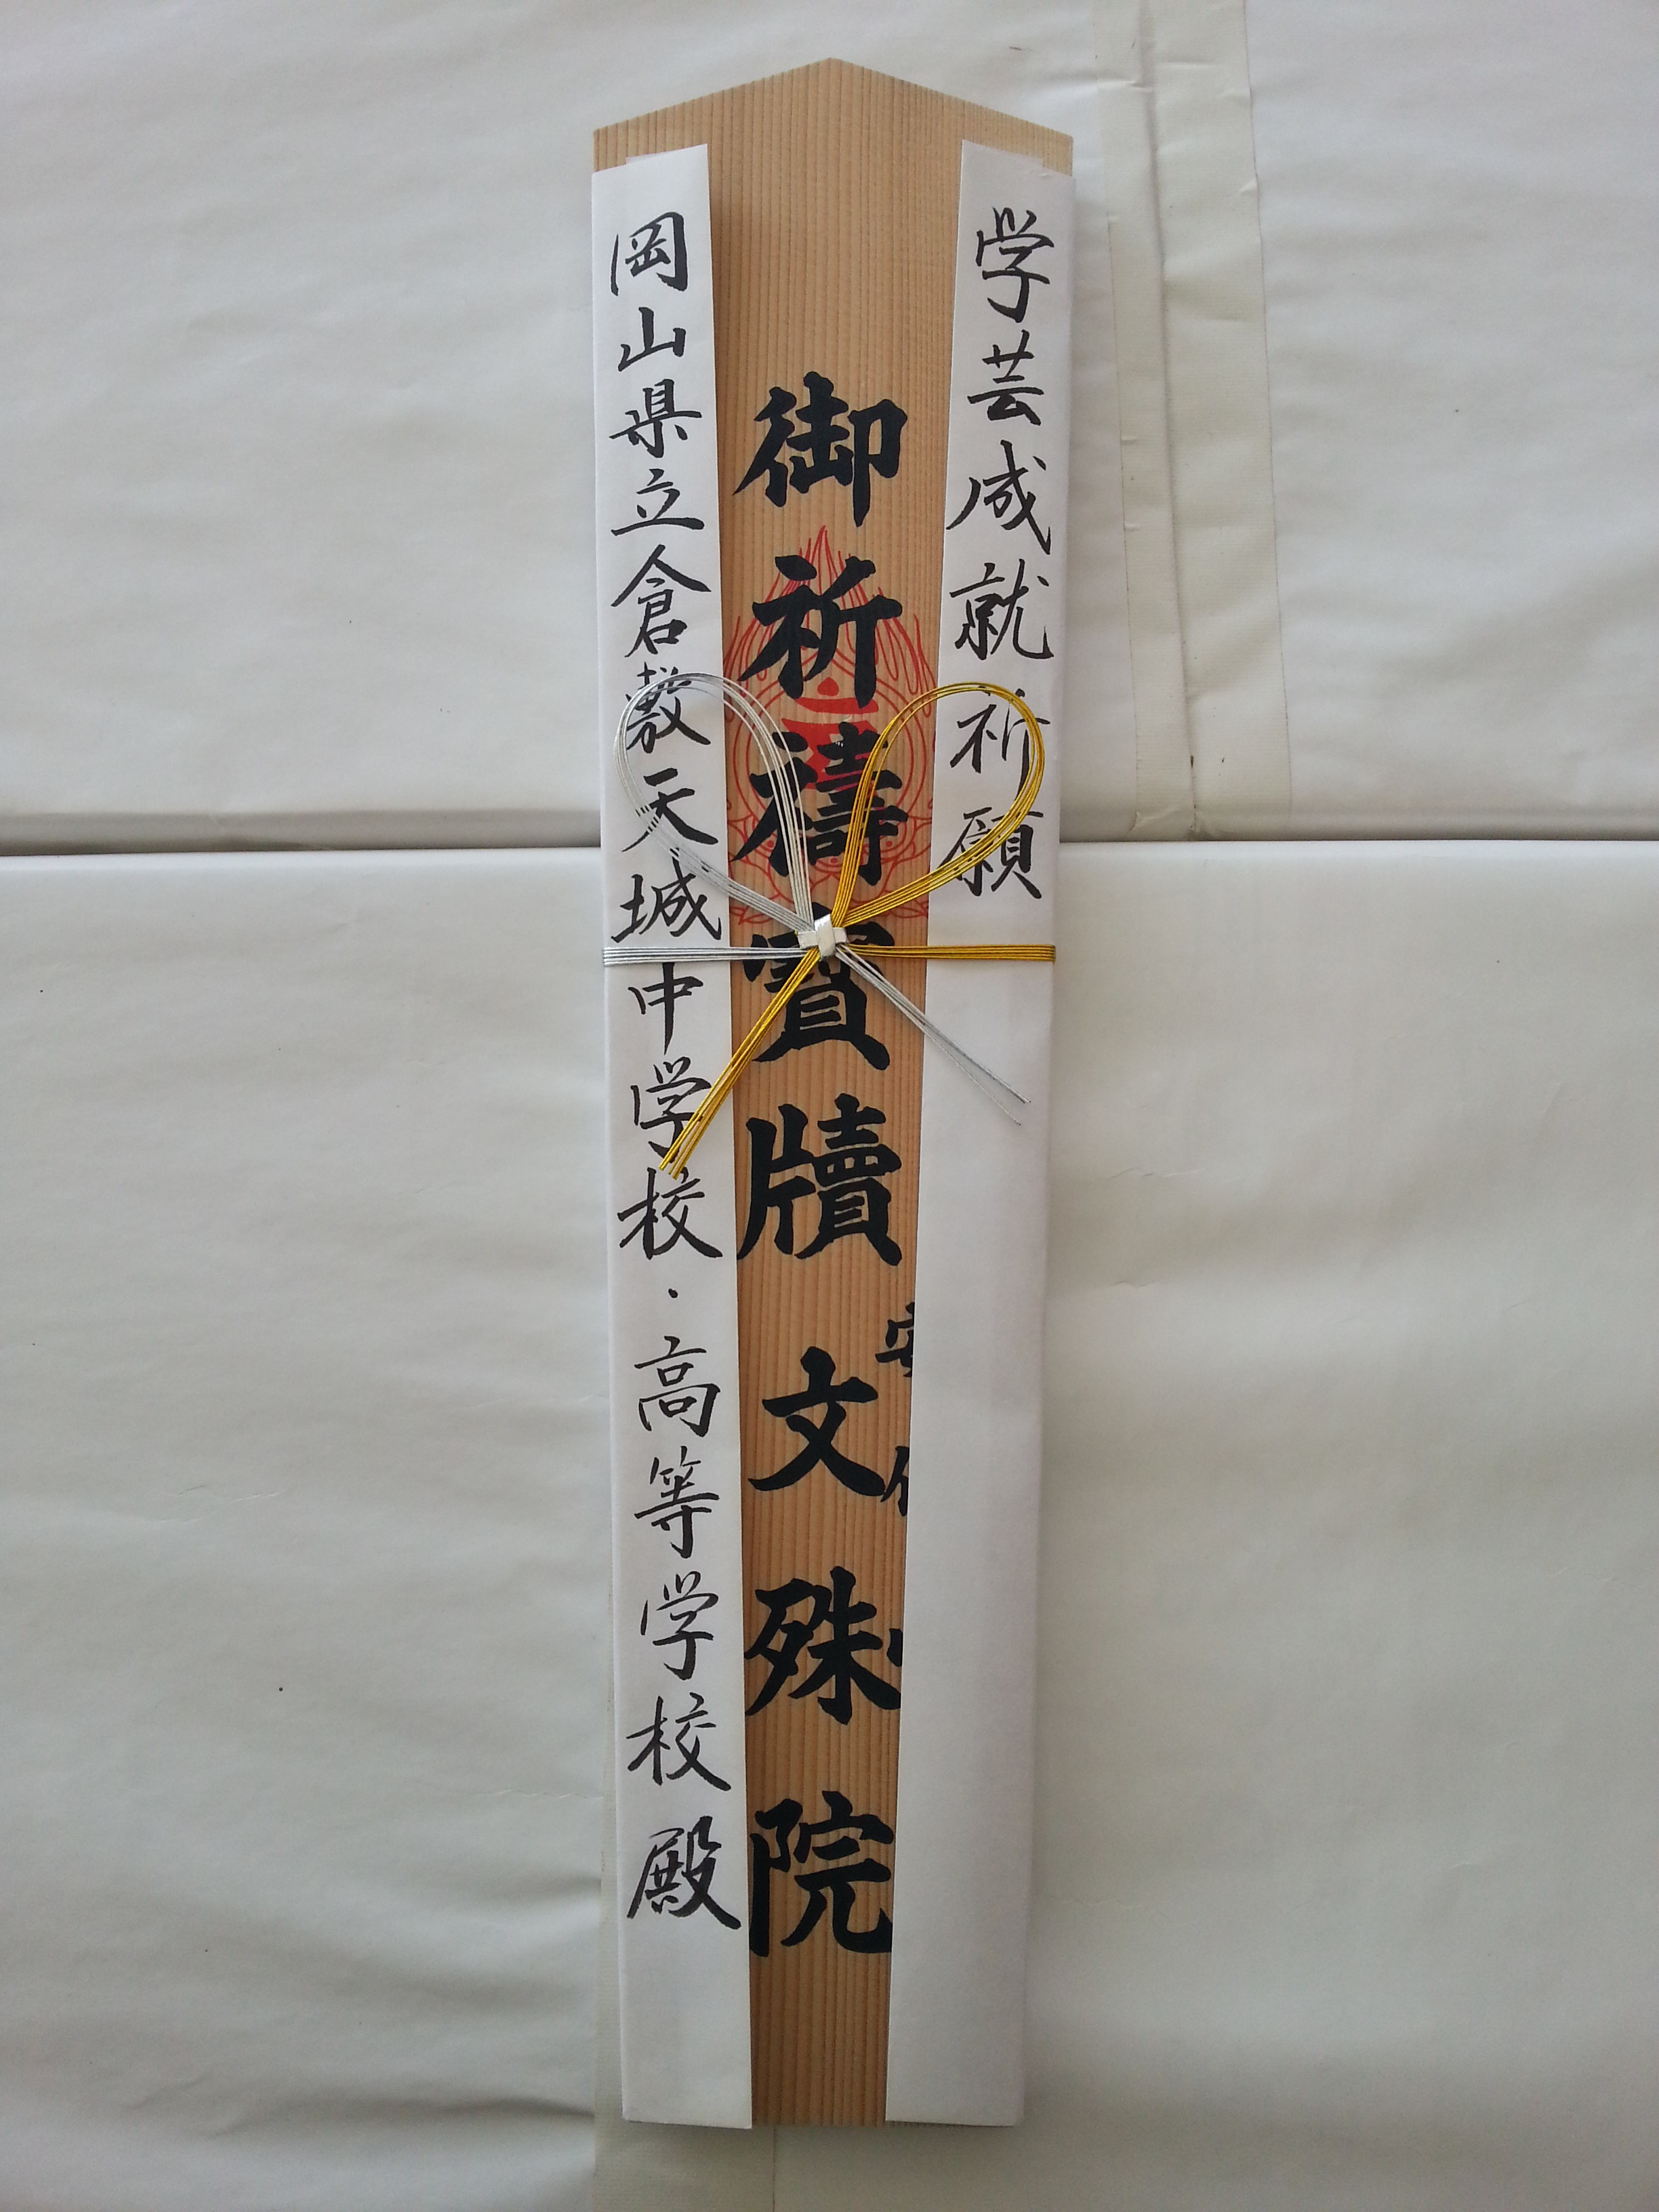 学芸成就祈願
御祈祷寳牘 文殊院
岡山県立倉敷天城中学校・高等学校殿